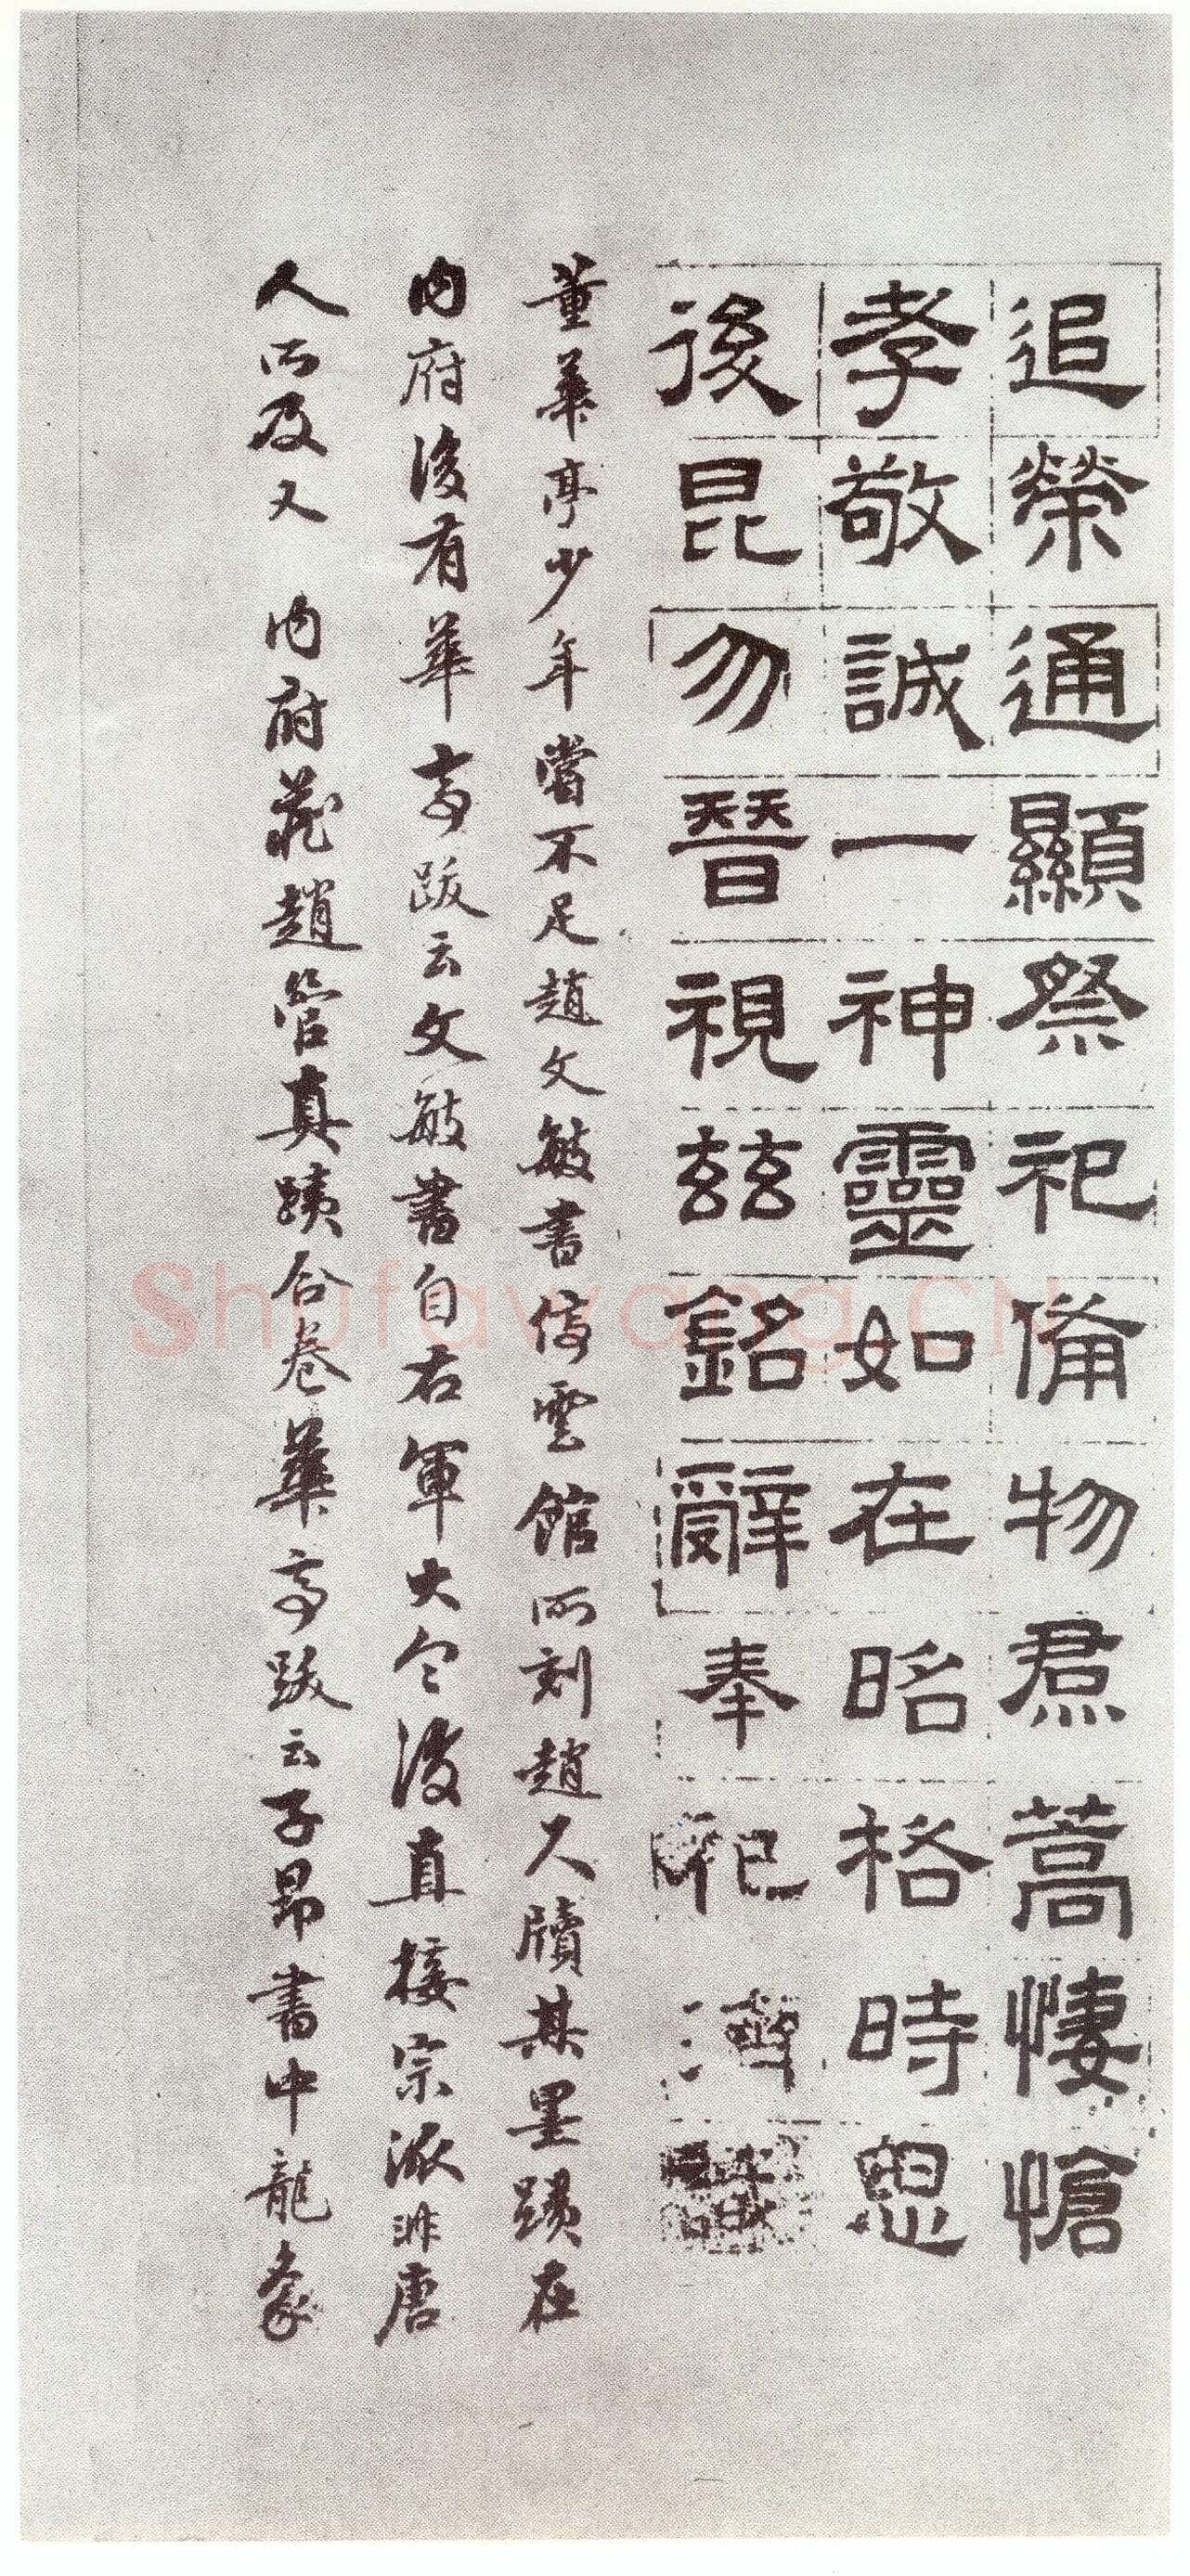 追榮通顯祭祀備物焄蒿悽愴
孝敬誠一神靈如在昭格時思
後昆勿晉視茲銘辭奉祀
董華亭少年嘗不足趙文敏書停雲館所刻趙人牘其墨蹟在
內府後有華亭跋云文敏書自右軍大令後直接宗派非唐
人所及又 內府藏趙管真蹟合卷華亭跋云子昂書中龍象
Shufawang.CN